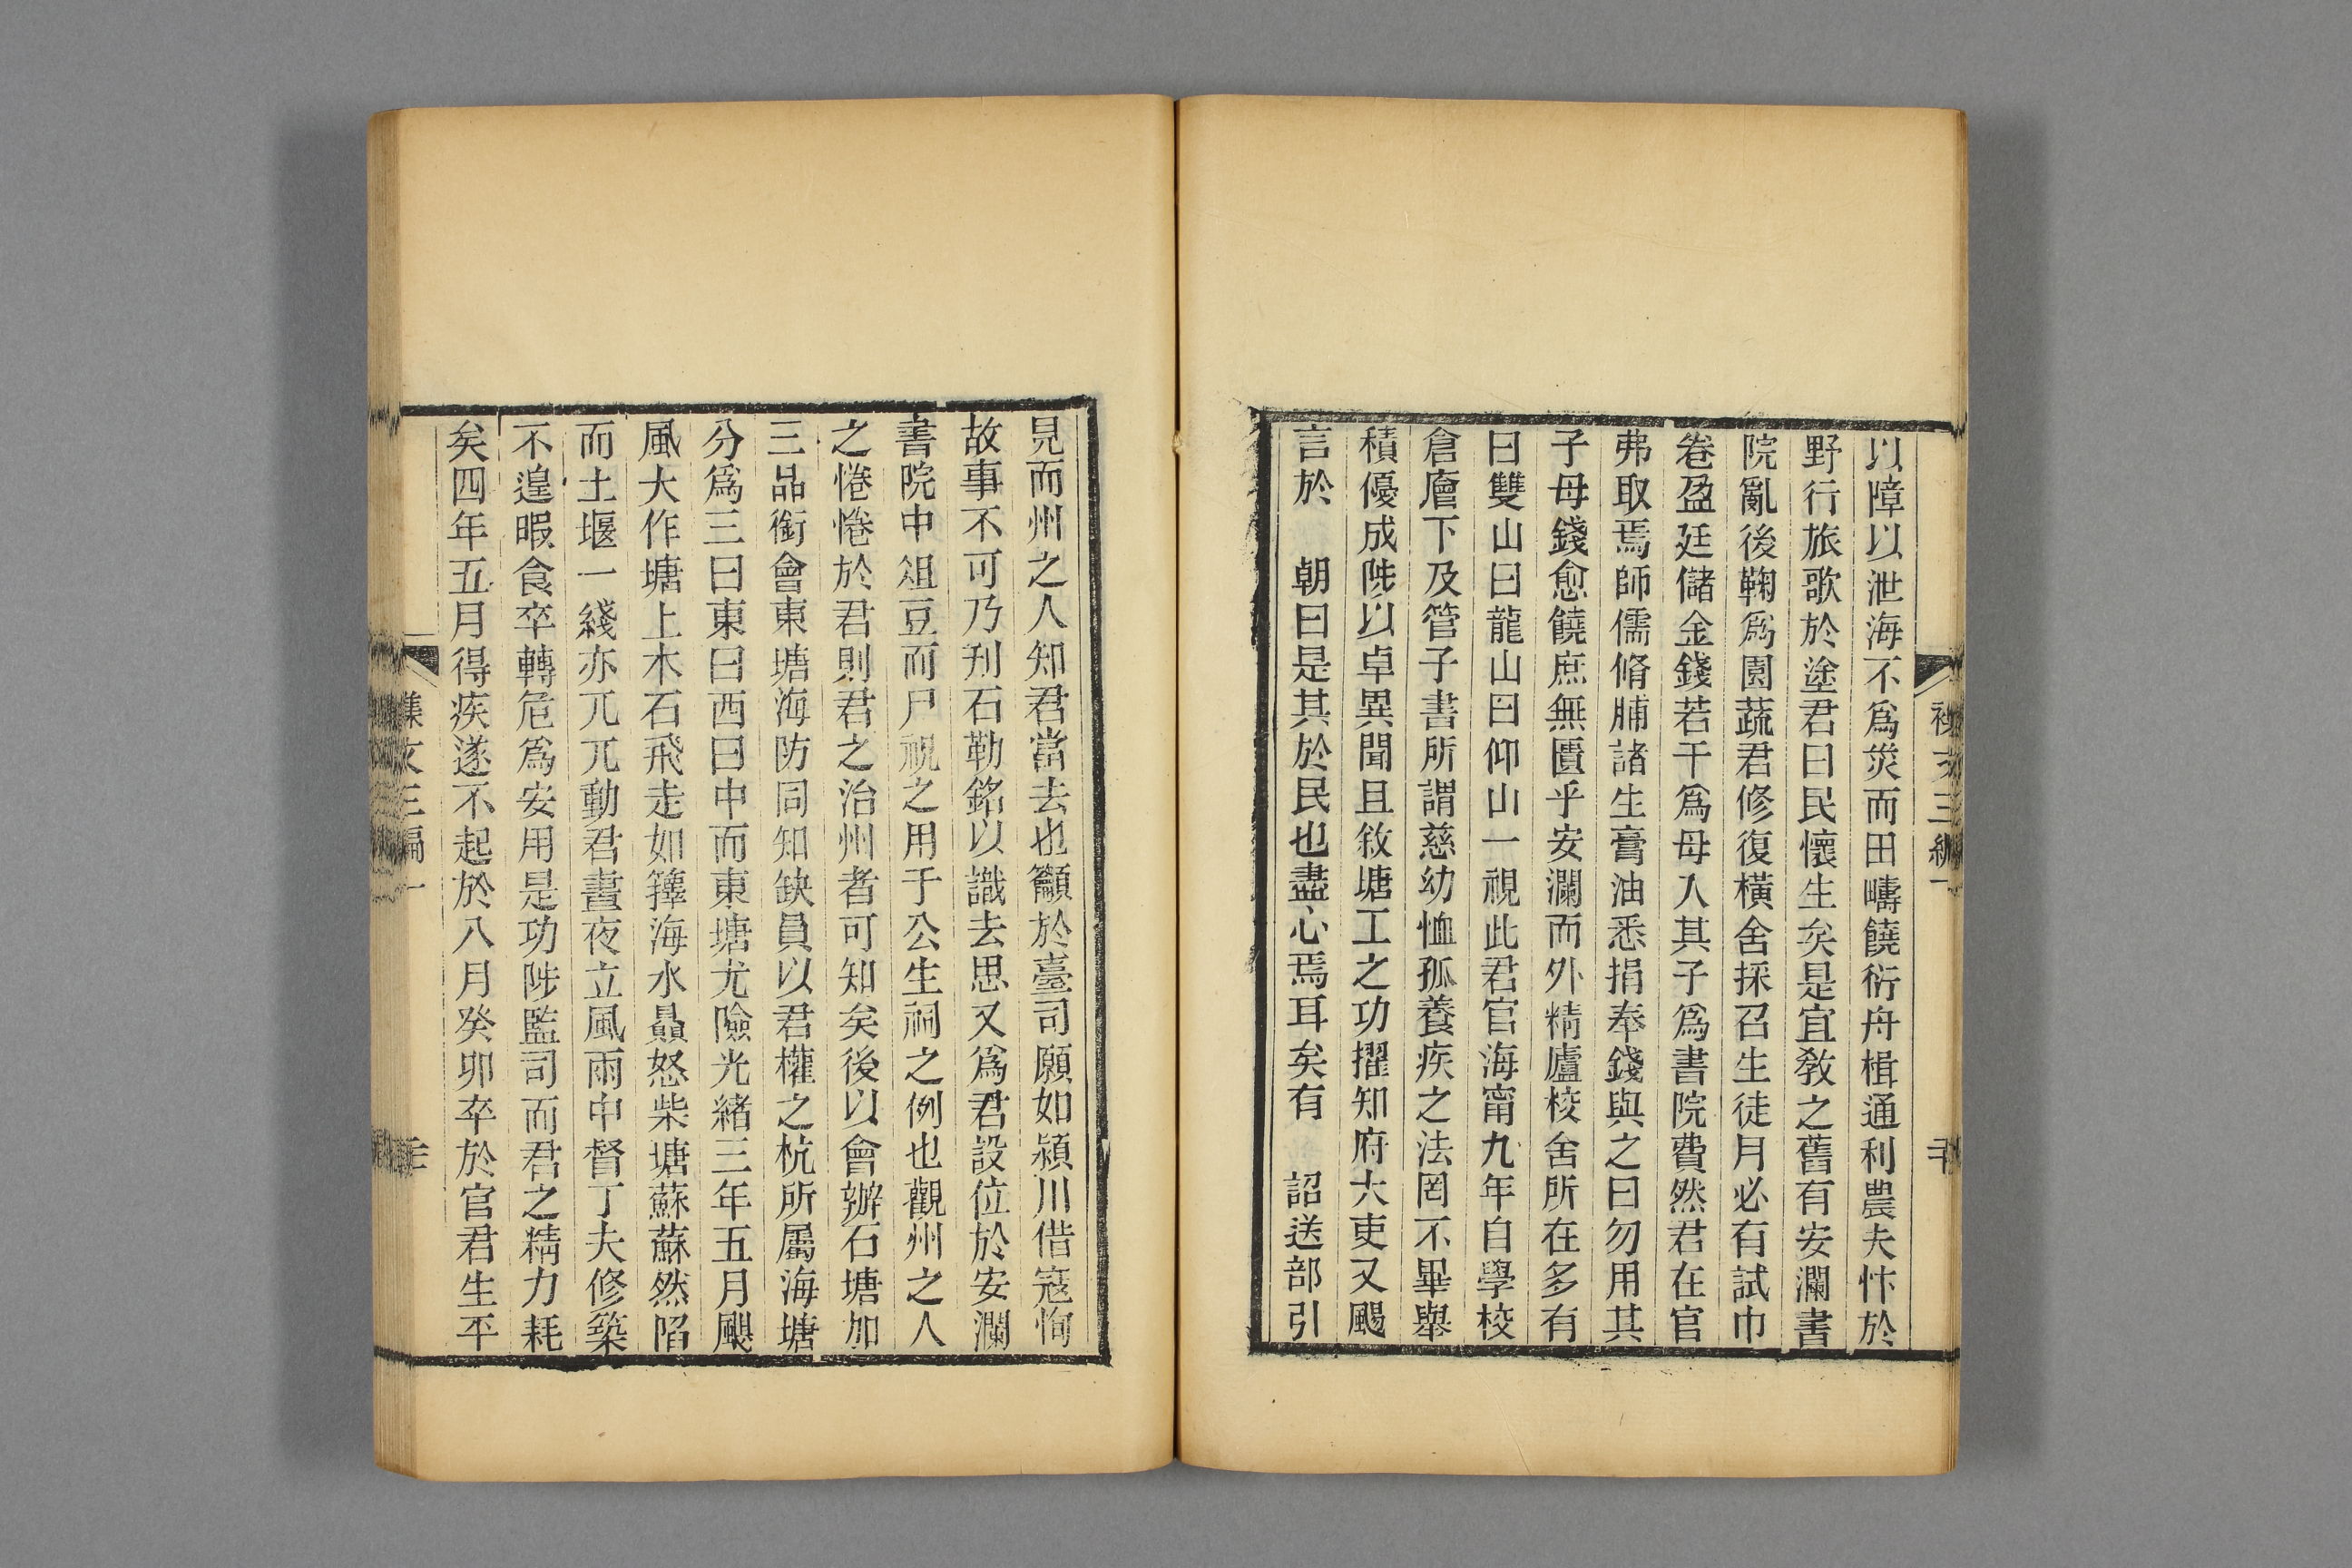 以障以泄海不爲災而田疇饒衍舟楫通利農夫忭於
野行旅歌於塗君曰民懷生矣是宜敎之舊有安瀾書
院亂後鞠爲園蔬君修復橫舍採召生徒月必有試巾
卷盈廷儲金錢若干爲母入其子爲書院費然君在官
弗取焉師儒脩脯諸生膏油悉捐奉錢與之曰勿用其
子母錢愈饒庶無匱乎安瀾而外精廬校舍所在多有
曰雙山曰龍山曰仰山一視此君官海甯九年自學校
倉廥下及管子書所謂慈幼恤孤養疾之法罔不畢舉
積優成陟以卓異聞且敘塘工之功擢知府大吏又颺
言於　朝曰是其於民也盡心焉耳矣有　詔送部引
見而州之人知君當去也籲於臺司願如潁川借寇恂
故事不可乃刋石勒銘以識去思又爲君設位於安瀾
書院中俎豆而尸祝之用于公生祠之例也觀州之人
之惓惓於君則君之治州者可知矣後以會辦石塘加
三品銜會東塘海防同知缺員以君權之杭所屬海塘
分爲三曰東曰西曰中而東塘尤險光緒三年五月颶
風大作塘上木石飛走如籜海水贔怒柴塘蘇蘇然陷
而土堰一綫亦兀兀動君晝夜立風雨中督丁夫修築
不遑暇食卒轉危爲安用是功陟監司而君之精力耗
矣四年五月得疾遂不起於八月癸卯卒於官君生平